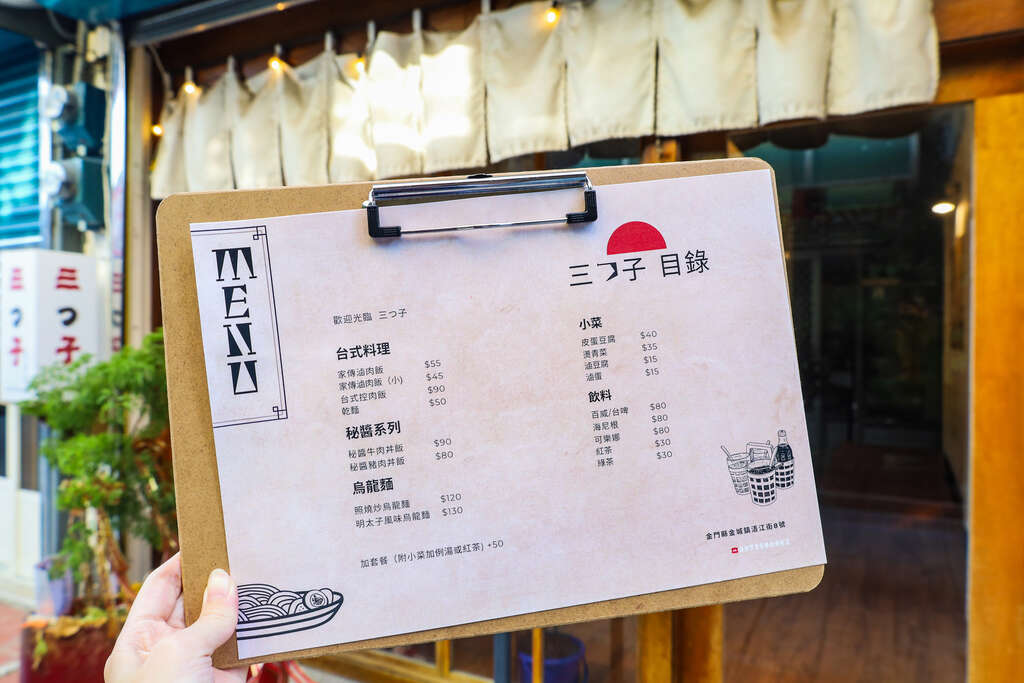 MENU
三つ子 目錄
歡迎光臨 三つ子
台式料理
家傳滷肉飯 $55
家傳滷肉飯 (小) $45
台式控肉飯 $90
乾麵 $50
秘醬系列
秘醬牛肉丼飯 $90
秘醬豬肉丼飯 $80
烏龍麵
照燒炒烏龍麵 $120
明太子風味烏龍麵 $130
加套餐 (附小菜加例湯或紅茶) +50
小菜
皮蛋豆腐 $40
燙青菜 $35
滷豆腐 $15
滷蛋 $15
飲料
百威/台啤 $80
海尼根 $80
可樂娜 $80
紅茶 $30
綠茶 $30
金門縣金城鎮浯江街8號
三つ子
三つ子